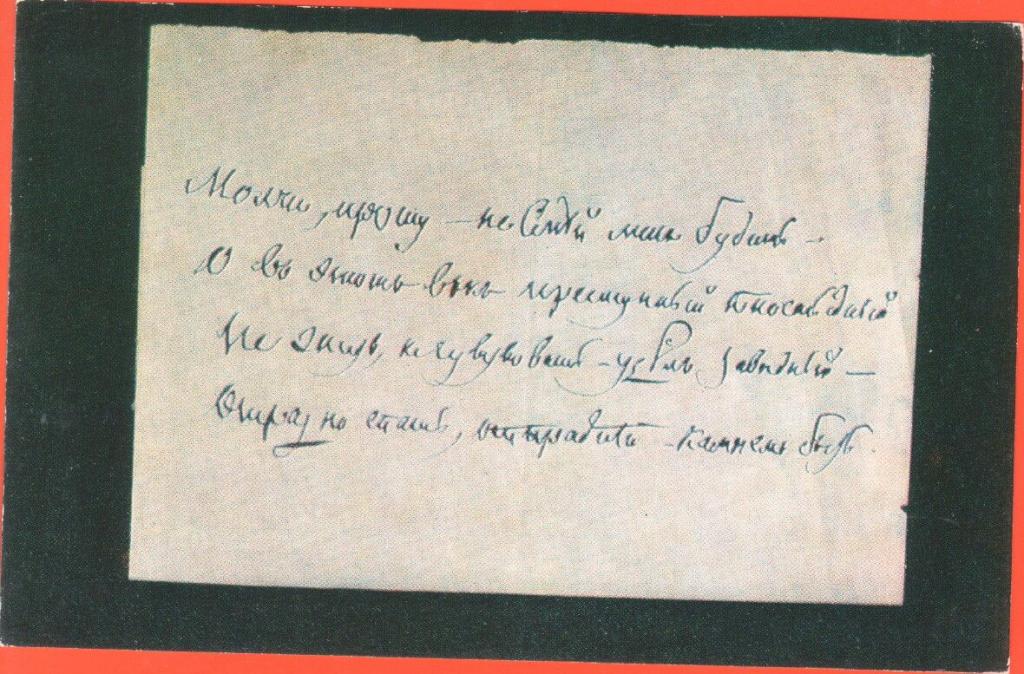 Молчи, прошу – не смѣй меня будить –
О въ этотъ вѣкъ преступный и постыдный
Не жить, не чувствовать – удѣлъ завидный –
Отрадно спать, отраднѣй – камнемъ быть.